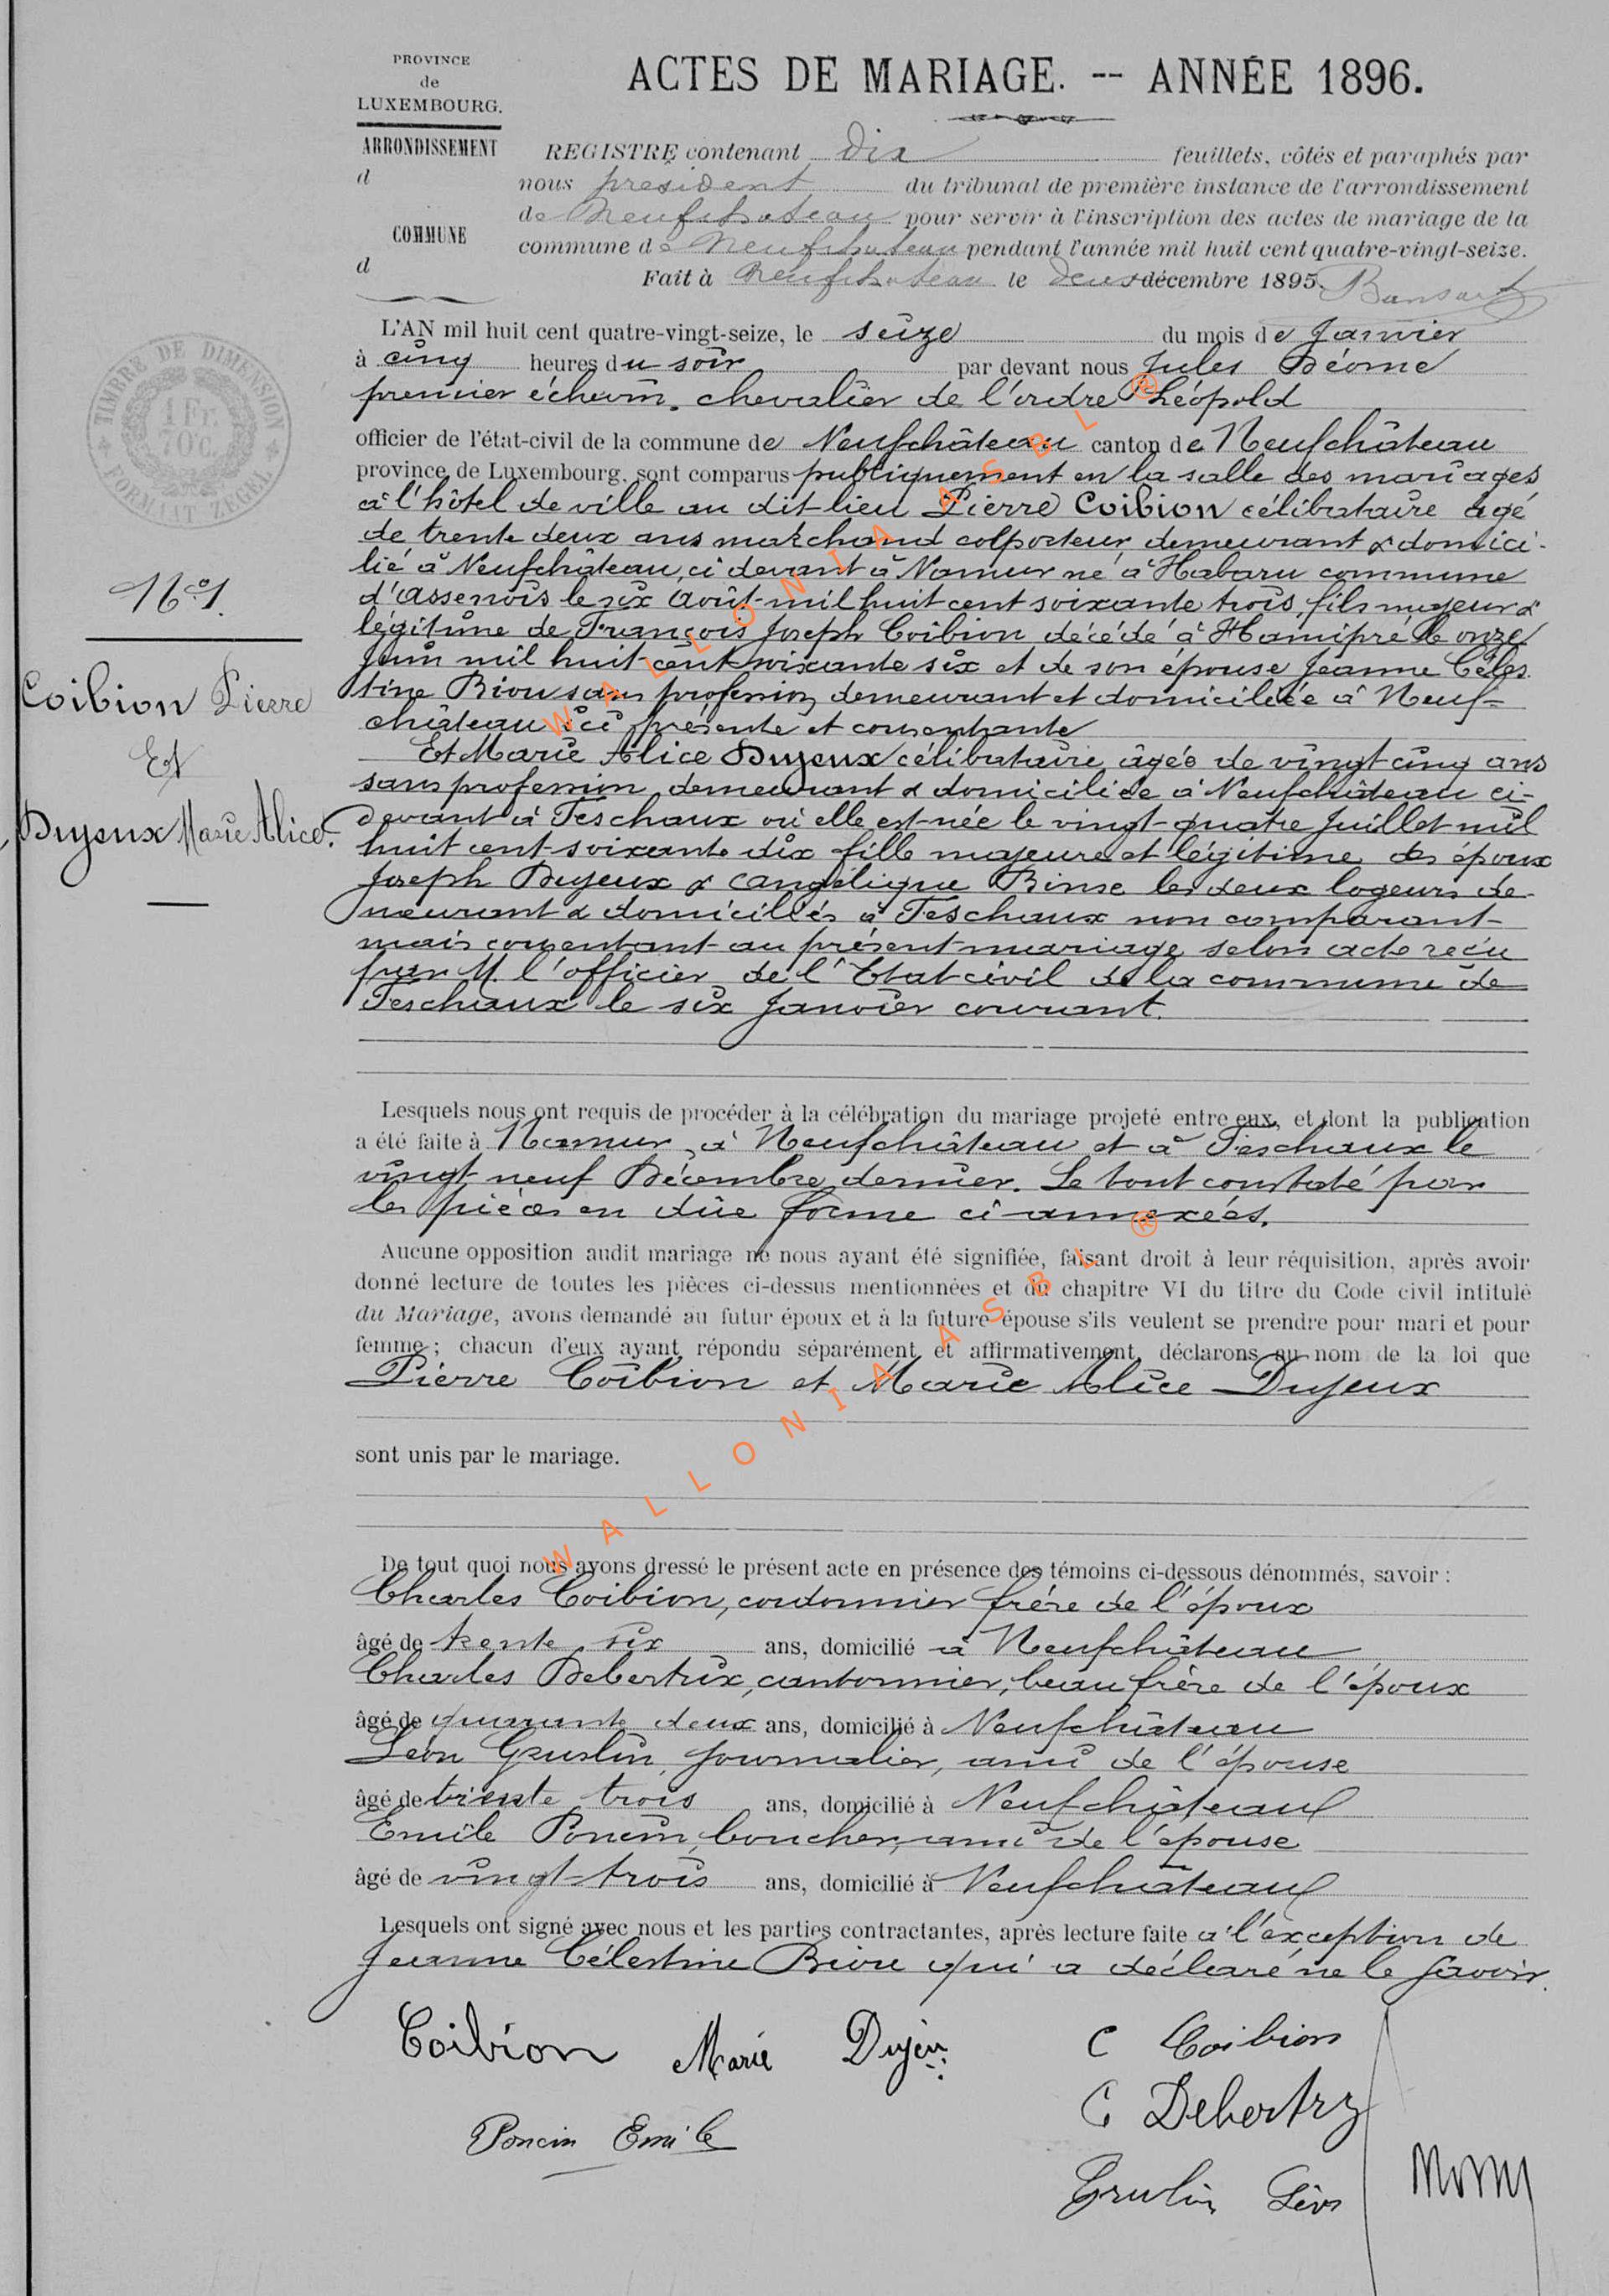 PROVINCE
de
LUXEMBOURG.
ARRONDISSEMENT
d
COMMUNE
d
ACTES DE MARIAGE. -- ANNÉE 1896.
REGISTRE contenant dix feuillets, côtés et paraphés par
nous president du tribunal de première instance de l'arrondissement
de Neufchateau pour servir à l'inscription des actes de mariage de la
commune de Neufchateau pendant l'année mil huit cent quatre-vingt-seize.
Fait à Neufchateau le deux décembre 1895.
TIMBRE DE DIMENSION
1 Fr.
70 C.
FORMAAT ZEGEL
L'AN mil huit cent quatre-vingt-seize, le seize du mois de Janvier
à cinq heures du soir par devant nous Jules Déome
premier échevin, chevalier de l'ordre Léopold
officier de l'état-civil de la commune de Neufchâteau canton de Neufchâteau
province de Luxembourg, sont comparus publiquement en la salle des mariages
à l'hôtel de ville au dit lieu Pierre Coibion célibataire agé
de trente deux ans marchand colporteur demeurant & domici-
lié à Neufchâteau, ci devant à Namur né à Habaru commune
d'Assenois le six Août mil huit cent soixante trois, fils majeur &
légitime de François Joseph Coibion décédé à Hamipré le onze
Juin mil huit cent soixante six et de son épouse Jeanne Céles-
tine Biou sans profession demeurant et domiciliée à Neuf-
château ici présente et consentante
Et Marie Alice Dujeux célibataire âgée de vingt cinq ans
sans profession demeurant & domiciliée à Neufchâteau ci-
devant à Feschaux où elle est née le vingt-quatre Juillet mil
huit cent soixante dix fille majeure et légitime des époux
Joseph Dujeux & Angélique Binse les deux logeurs de-
meurant & domiciliés à Feschaux non comparant
mais consentant au présent mariage selon acte reçu
par M. l'officier de l'Etat civil de la commune de
Feschaux le six Janvier courant.
N° 1.
Coibion Pierre
Et
Dujeux Marie Alice.
Lesquels nous ont requis de procéder à la célébration du mariage projeté entre eux, et dont la publication
a été faite à Namur, à Neufchâteau et à Feschaux le
vingt neuf Décembre dernier. Le tout constaté par
les pièces en dûe forme ci-annexées.
Aucune opposition audit mariage ne nous ayant été signifiée, faisant droit à leur réquisition, après avoir
donné lecture de toutes les pièces ci-dessus mentionnées et du chapitre VI du titre du Code civil intitulé
du Mariage, avons demandé au futur époux et à la future épouse s'ils veulent se prendre pour mari et pour
femme ; chacun d'eux ayant répondu séparément et affirmativement, déclarons au nom de la loi que
Pierre Coibion et Marie Alice Dujeux
sont unis par le mariage.
De tout quoi nous avons dressé le présent acte en présence des témoins ci-dessous dénommés, savoir :
Charles Coibion, cordonnier frère de l'époux
âgé de trente six ans, domicilié à Neufchâteau
Charles Debertrix, cantonnier, beau frère de l'époux
âgé de quarante deux ans, domicilié à Neufchâteau
Léon Gruslin, journalier, ami de l'épouse
âgé de trente trois ans, domicilié à Neufchâteau
Emile Poncin, boucher, ami de l'épouse
âgé de vingt-trois ans, domicilié à Neufchâteau
Lesquels ont signé avec nous et les parties contractantes, après lecture faite à l'exception de
Jeanne Célestine Biou qui a déclaré ne le savoir.
Coibion Marie Dujeu C Coibion
C Debertry
Poncin Emile
Grulin Léon
WALLONIA ASBL ®
WALLONIA ASBL ®